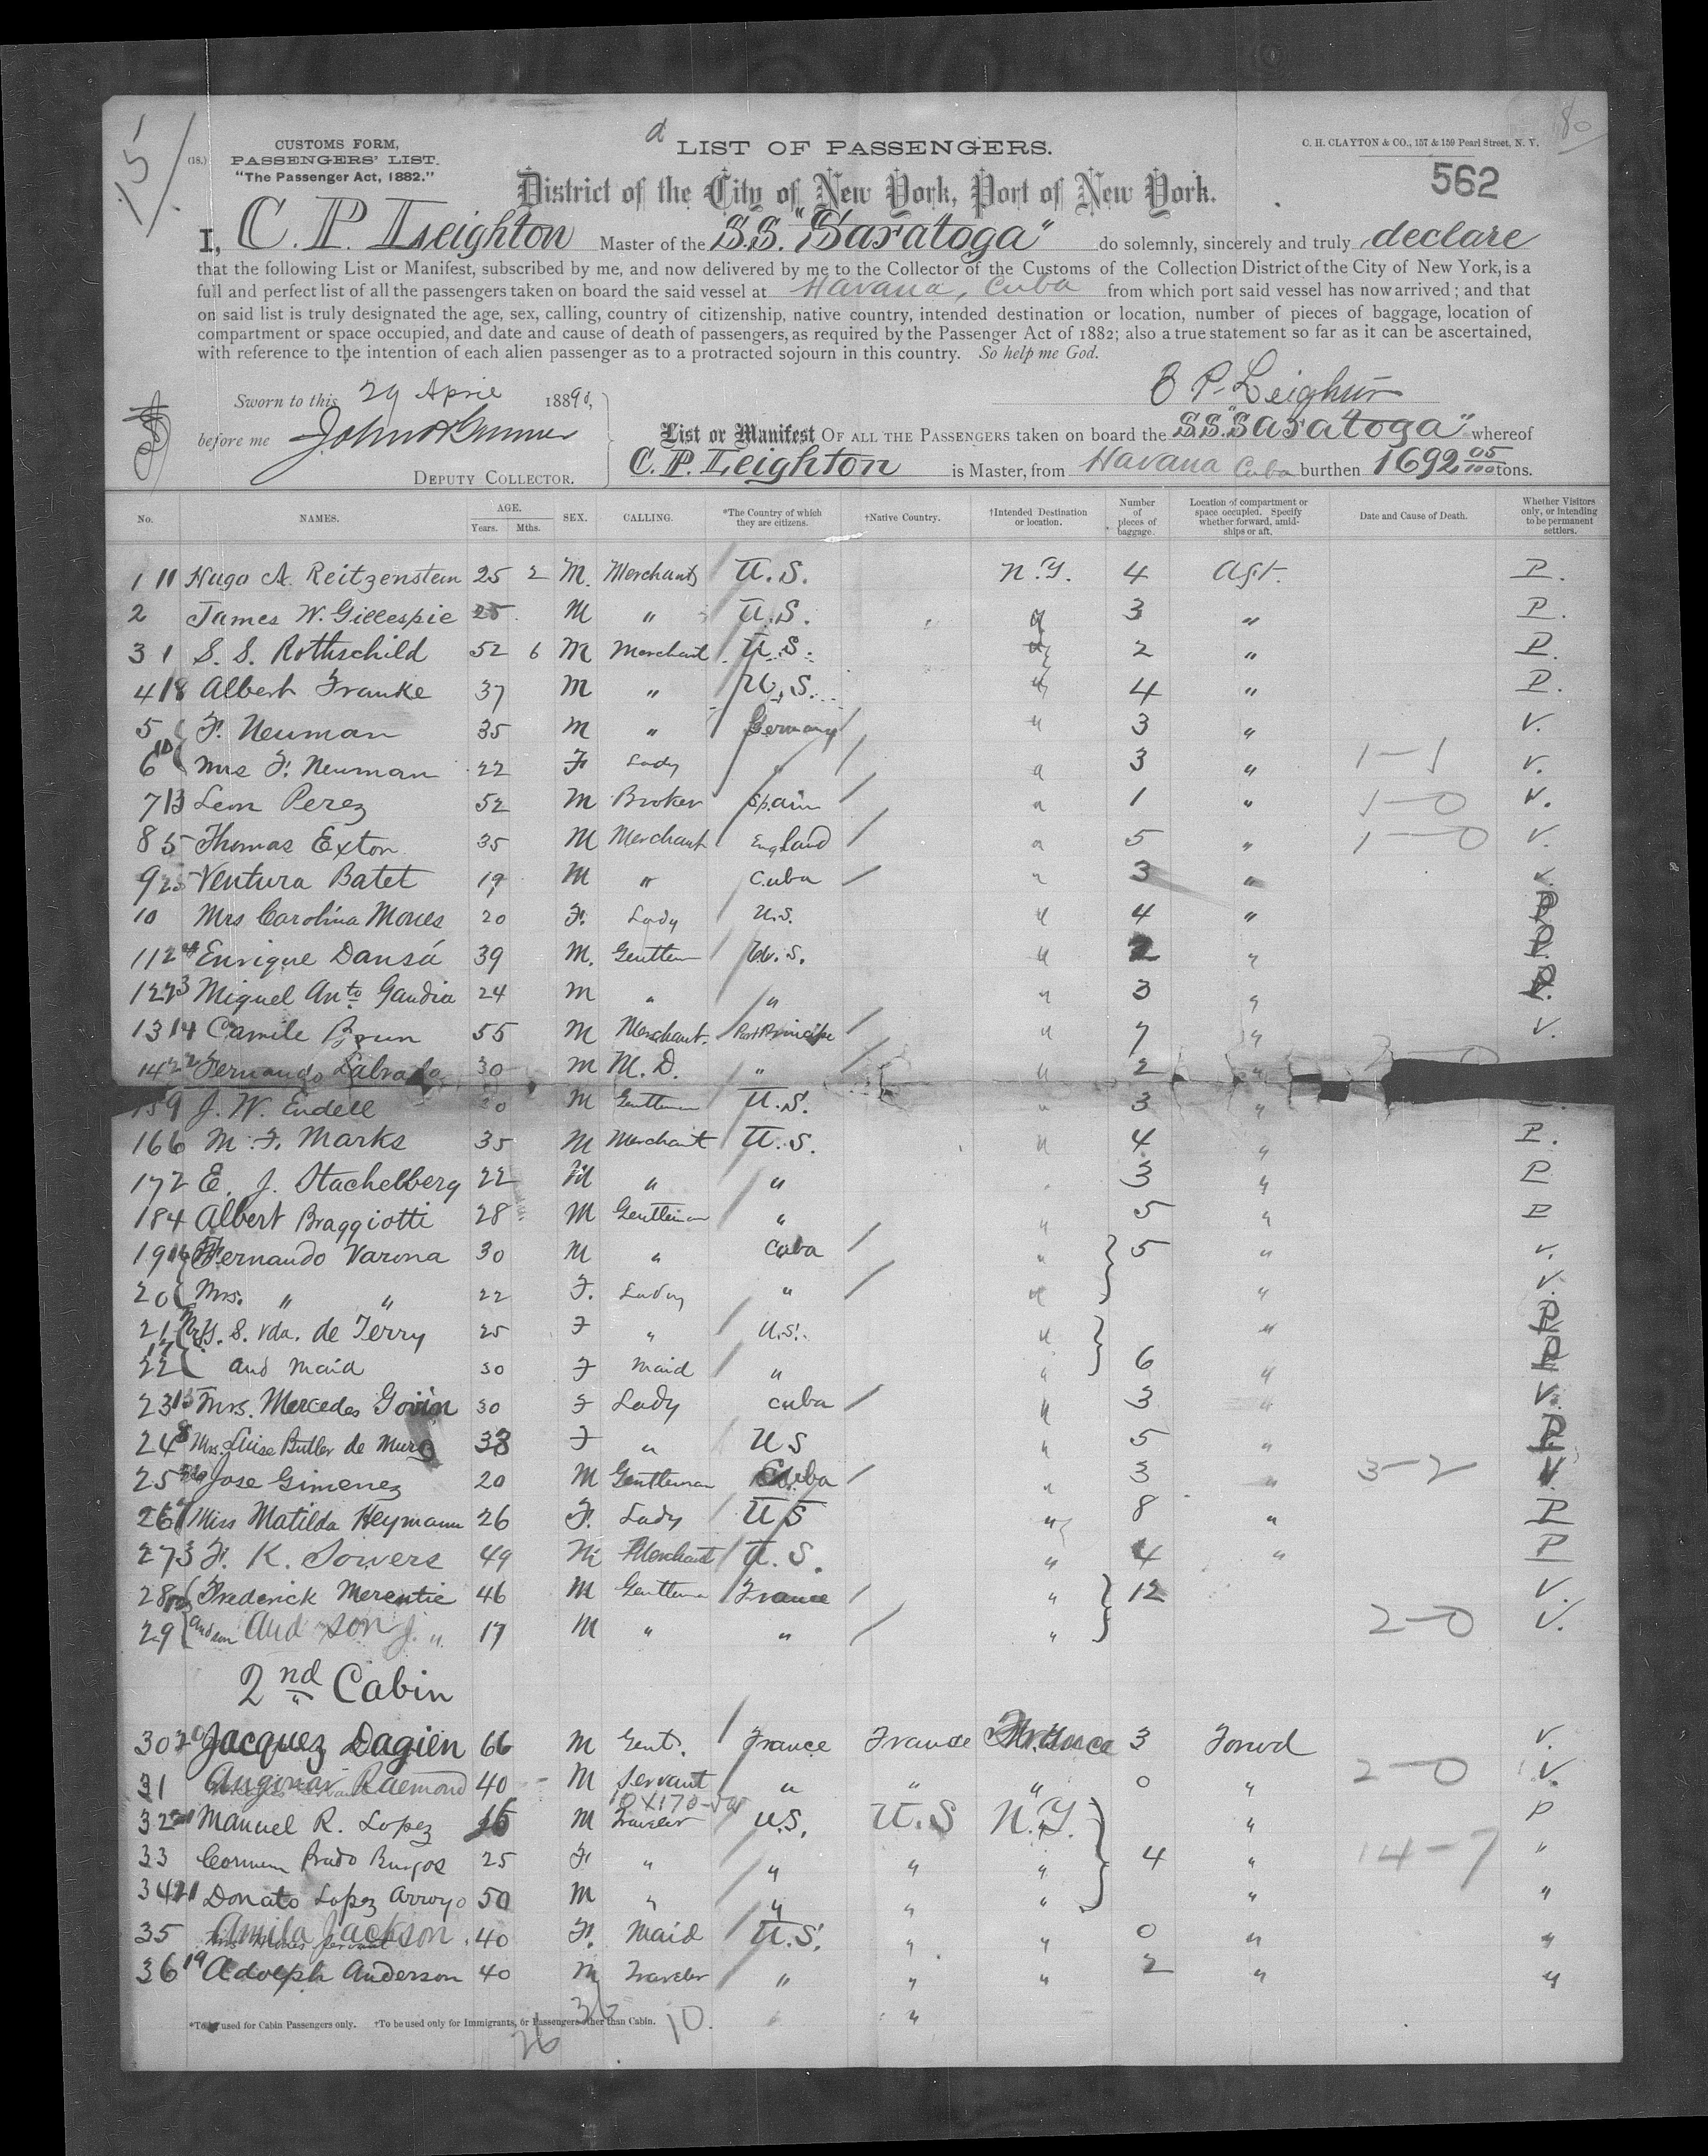 15/
80
CUSTOMS FORM,
(18.) PASSENGERS' LIST.
"The Passenger Act, 1882."
a LIST OF PASSENGERS.
C. H. CLAYTON & CO., 157 & 159 Pearl Street, N. Y.
562
District of the City of New York, Port of New York.
I, C. P. Leighton Master of the S.S. "Saratoga" do solemnly, sincerely and truly declare
that the following List or Manifest, subscribed by me, and now delivered by me to the Collector of the Customs of the Collection District of the City of New York, is a
full and perfect list of all the passengers taken on board the said vessel at Havana, Cuba from which port said vessel has now arrived; and that
on said list is truly designated the age, sex, calling, country of citizenship, native country, intended destination or location, number of pieces of baggage, location of
compartment or space occupied, and date and cause of death of passengers, as required by the Passenger Act of 1882; also a true statement so far as it can be ascertained,
with reference to the intention of each alien passenger as to a protracted sojourn in this country. So help me God.
C P. Leighton
Sworn to this 29 April 1890,
before me
DEPUTY COLLECTOR.
List or Manifest OF ALL THE PASSENGERS taken on board the S.S. "Saratoga" whereof
C. P. Leighton is Master, from Havana Cuba burthen 1692 05/100 tons.
No. NAMES. AGE. Years. Mths. SEX. CALLING. *The Country of which they are citizens. †Native Country. †Intended Destination or location. Number of pieces of baggage. Location of compartment or space occupied. Specify whether forward, amidships or aft. Date and Cause of Death. Whether Visitors only, or intending to be permanent settlers.
1 11 Hugo A. Reitzenstein 25 2 M. Merchant U.S. N.Y. 4 Aft. P.
2 James W. Gillespie 25 M " U.S. " 3 " P.
3 1 S. S. Rothschild 52 6 M Merchant U.S. " 2 " P.
4 18 Albert Franke 37 M " U.S. " 4 " P.
5 F. Neuman 35 M " Germany " 3 " V.
6 10 Mrs F. Neuman 22 F Lady " " 3 " 1-1 V.
7 13 Leon Perez 52 M Broker Spain " 1 " 1-0 V.
8 5 Thomas Exton 35 M Merchant England " 5 " 1-0 V.
9 25 Ventura Batet 19 M " Cuba " 3 " V.
10 Mrs Carolina Mones 20 F. Lady U.S. " 4 " P
11 24 Enrique Dansá 39 M. Gentlem U.S. " 2 " P.
12 23 Miguel Anto Gaudia 24 M " " " 3 " P.
13 14 Camile Brun 55 M Merchant. Port Principe " 7 " V.
14 22 Fernando Labrada 30 M M.D. " " 2 "
15 9 J. W. Endell 30 M Gentleman U.S. " 3 "
16 6 M. F. Marks 35 M Merchant U.S. " 4 " P.
17 2 E. J. Stachelberg 22 M " " 3 " P
18 4 Albert Braggiotti 28 M Gentleman " " 5 " P
19 16 Fernando Varona 30 M " Cuba " 5 " V.
20 Mrs. " " 22 F. Lady " " " V.
21 Mrs. S. vda. de Terry 25 F " U.S. " " P
22 17 and maid 30 F maid " " 6 " P
23 15 Mrs. Mercedes Govin 30 F Lady Cuba " 3 " V.
24 8 Mrs. Luise Butler de Murg 33 F " US " 5 " P
25 Jose Gimenez 20 M Gentleman Cuba " 3 " 3-2 V.
26 7 Miss Matilda Heymann 26 F. Lady US " 8 " P
27 3 F. K. Sowers 49 M Merchant U.S. " 4 " P
28 12 Frederick Merentie 46 M Gentlema France " 12 V.
29 and son And son J. " 17 M " " " 2-0 V.
2nd Cabin
30 20 Jacquez Dagien 66 M Gent. France France France 3 Forwd V.
31 Raemond 40 - M Servant " " " 0 " 2-0 V.
32 Manuel R. Lopez 16 M Traveler U.S. U.S N.Y. " P
33 Carmen Prado Burgos 25 F " " " " 4 " 14-7 "
34 21 Donato Lopez Arroyo 50 M " " " " " "
35 Amila Jackson 40 F. Maid U.S. " " 0 " "
36 19 Adolph Anderson 40 M Traveler " " " 2 " "
*To be used for Cabin Passengers only. †To be used only for Immigrants, or Passengers other than Cabin.
36
26
10.
"